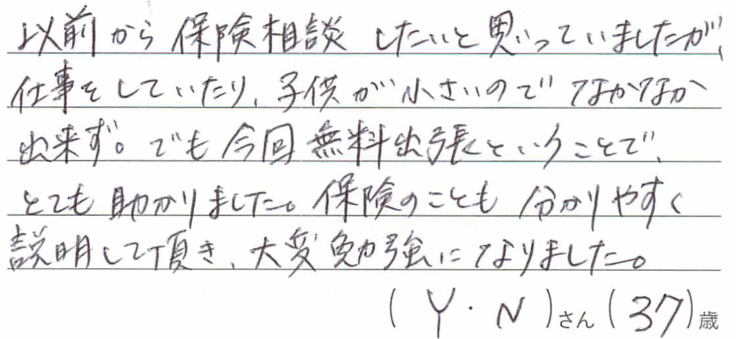 以前から保険相談したいと思っていましたが、
仕事をしていたり、子供が小さいのでなかなか
出来ず。でも今回無料出張ということで、
とても助かりました。保険のことも分かりやすく
説明して頂き、大変勉強になりました。
(Y・N)さん(37)歳